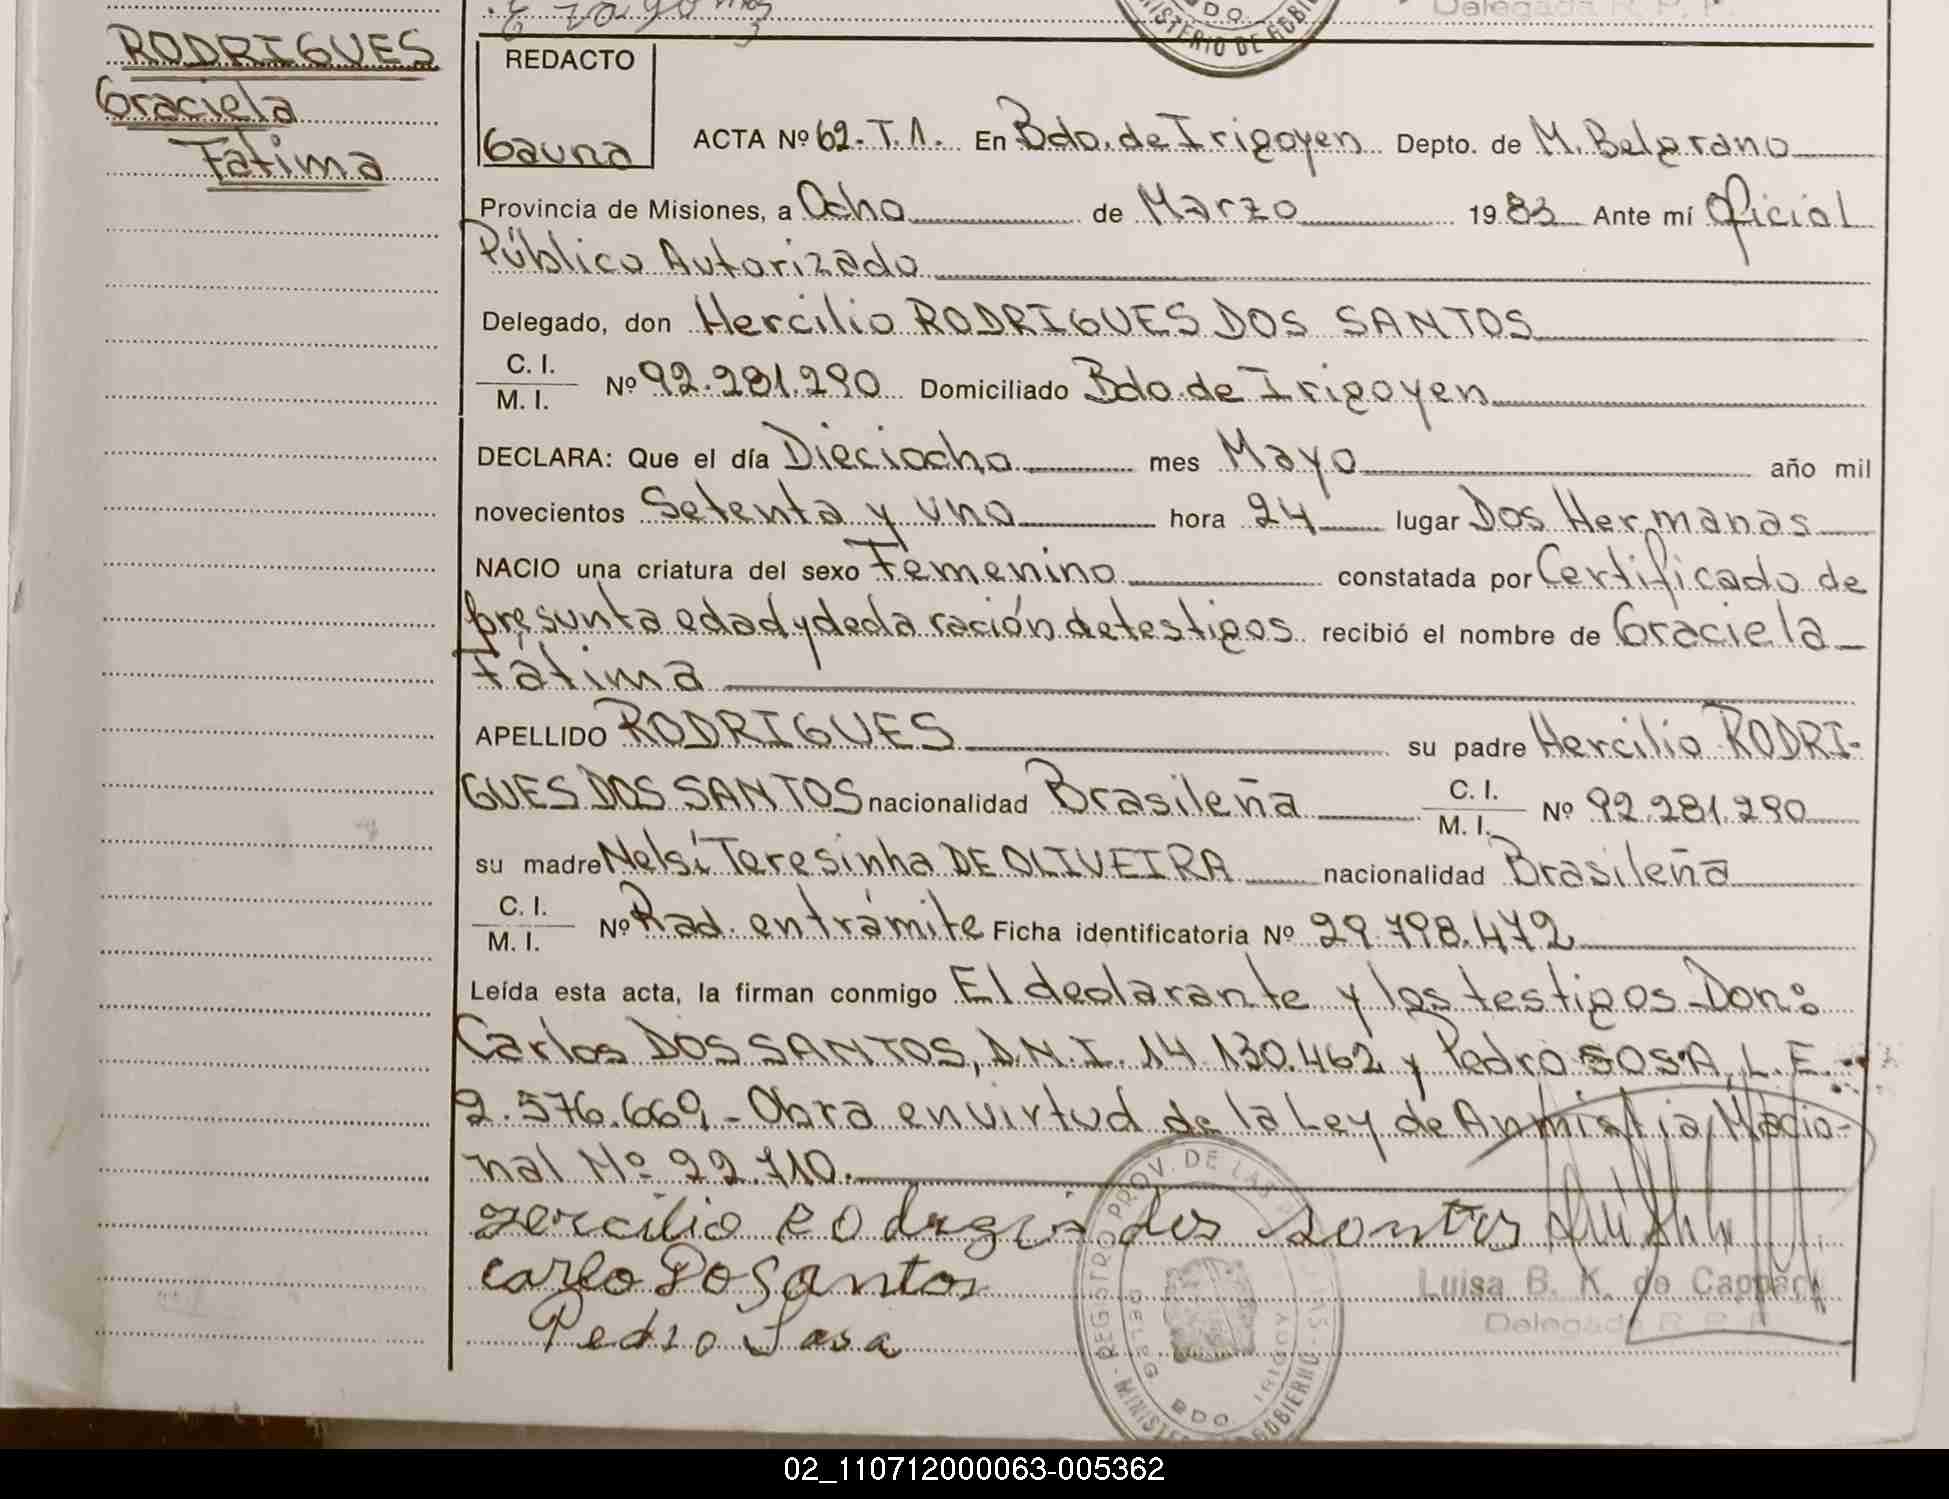 RODRIGUES
Graciela
Fátima
REDACTO
Gauna
ACTA Nº 62-T.1. En Bdo. de Irigoyen Depto. de M. Belgrano
Provincia de Misiones, a Ocho de Marzo 1983 Ante mí Oficial
Público Autorizado
Delegado, don Hercilio RODRIGUES DOS SANTOS
C. I.
M. I. Nº 92.281.290 Domiciliado Bdo. de Irigoyen
DECLARA: Que el día Dieciocho mes Mayo año mil
novecientos Setenta y uno hora 24 lugar Dos Hermanas
NACIO una criatura del sexo Femenino constatada por Certificado de
presunta edad y declaración de testigos recibió el nombre de Graciela
Fátima
APELLIDO RODRIGUES su padre Hercilio RODRI-
GUES DOS SANTOS nacionalidad Brasileña C. I.
M. I. Nº 92.281.290
su madre Nelsi Teresinha DE OLIVEIRA nacionalidad Brasileña
C. I.
M. I. Nº Rad. en trámite Ficha identificatoria Nº 29.798.472
Leída esta acta, la firman conmigo El declarante y los testigos Don:
Carlos DOS SANTOS, D.N.I. 14.130.462 y Pedro SOSA, L.E.
2.576.669,- Obra en virtud de la Ley de Anmistia Nacio-
nal Nº 22.710.
Hercilio Rodrigues dos Santos
Carlo Do Santos
Pedro Sosa
Luisa B. K. de Cappari
Delegada R. P. P.
REGISTRO PROV. DE LAS
DELEG. BDO. IRIGOY
MINISTERIO DE GOBIERNO
02_110712000063-005362